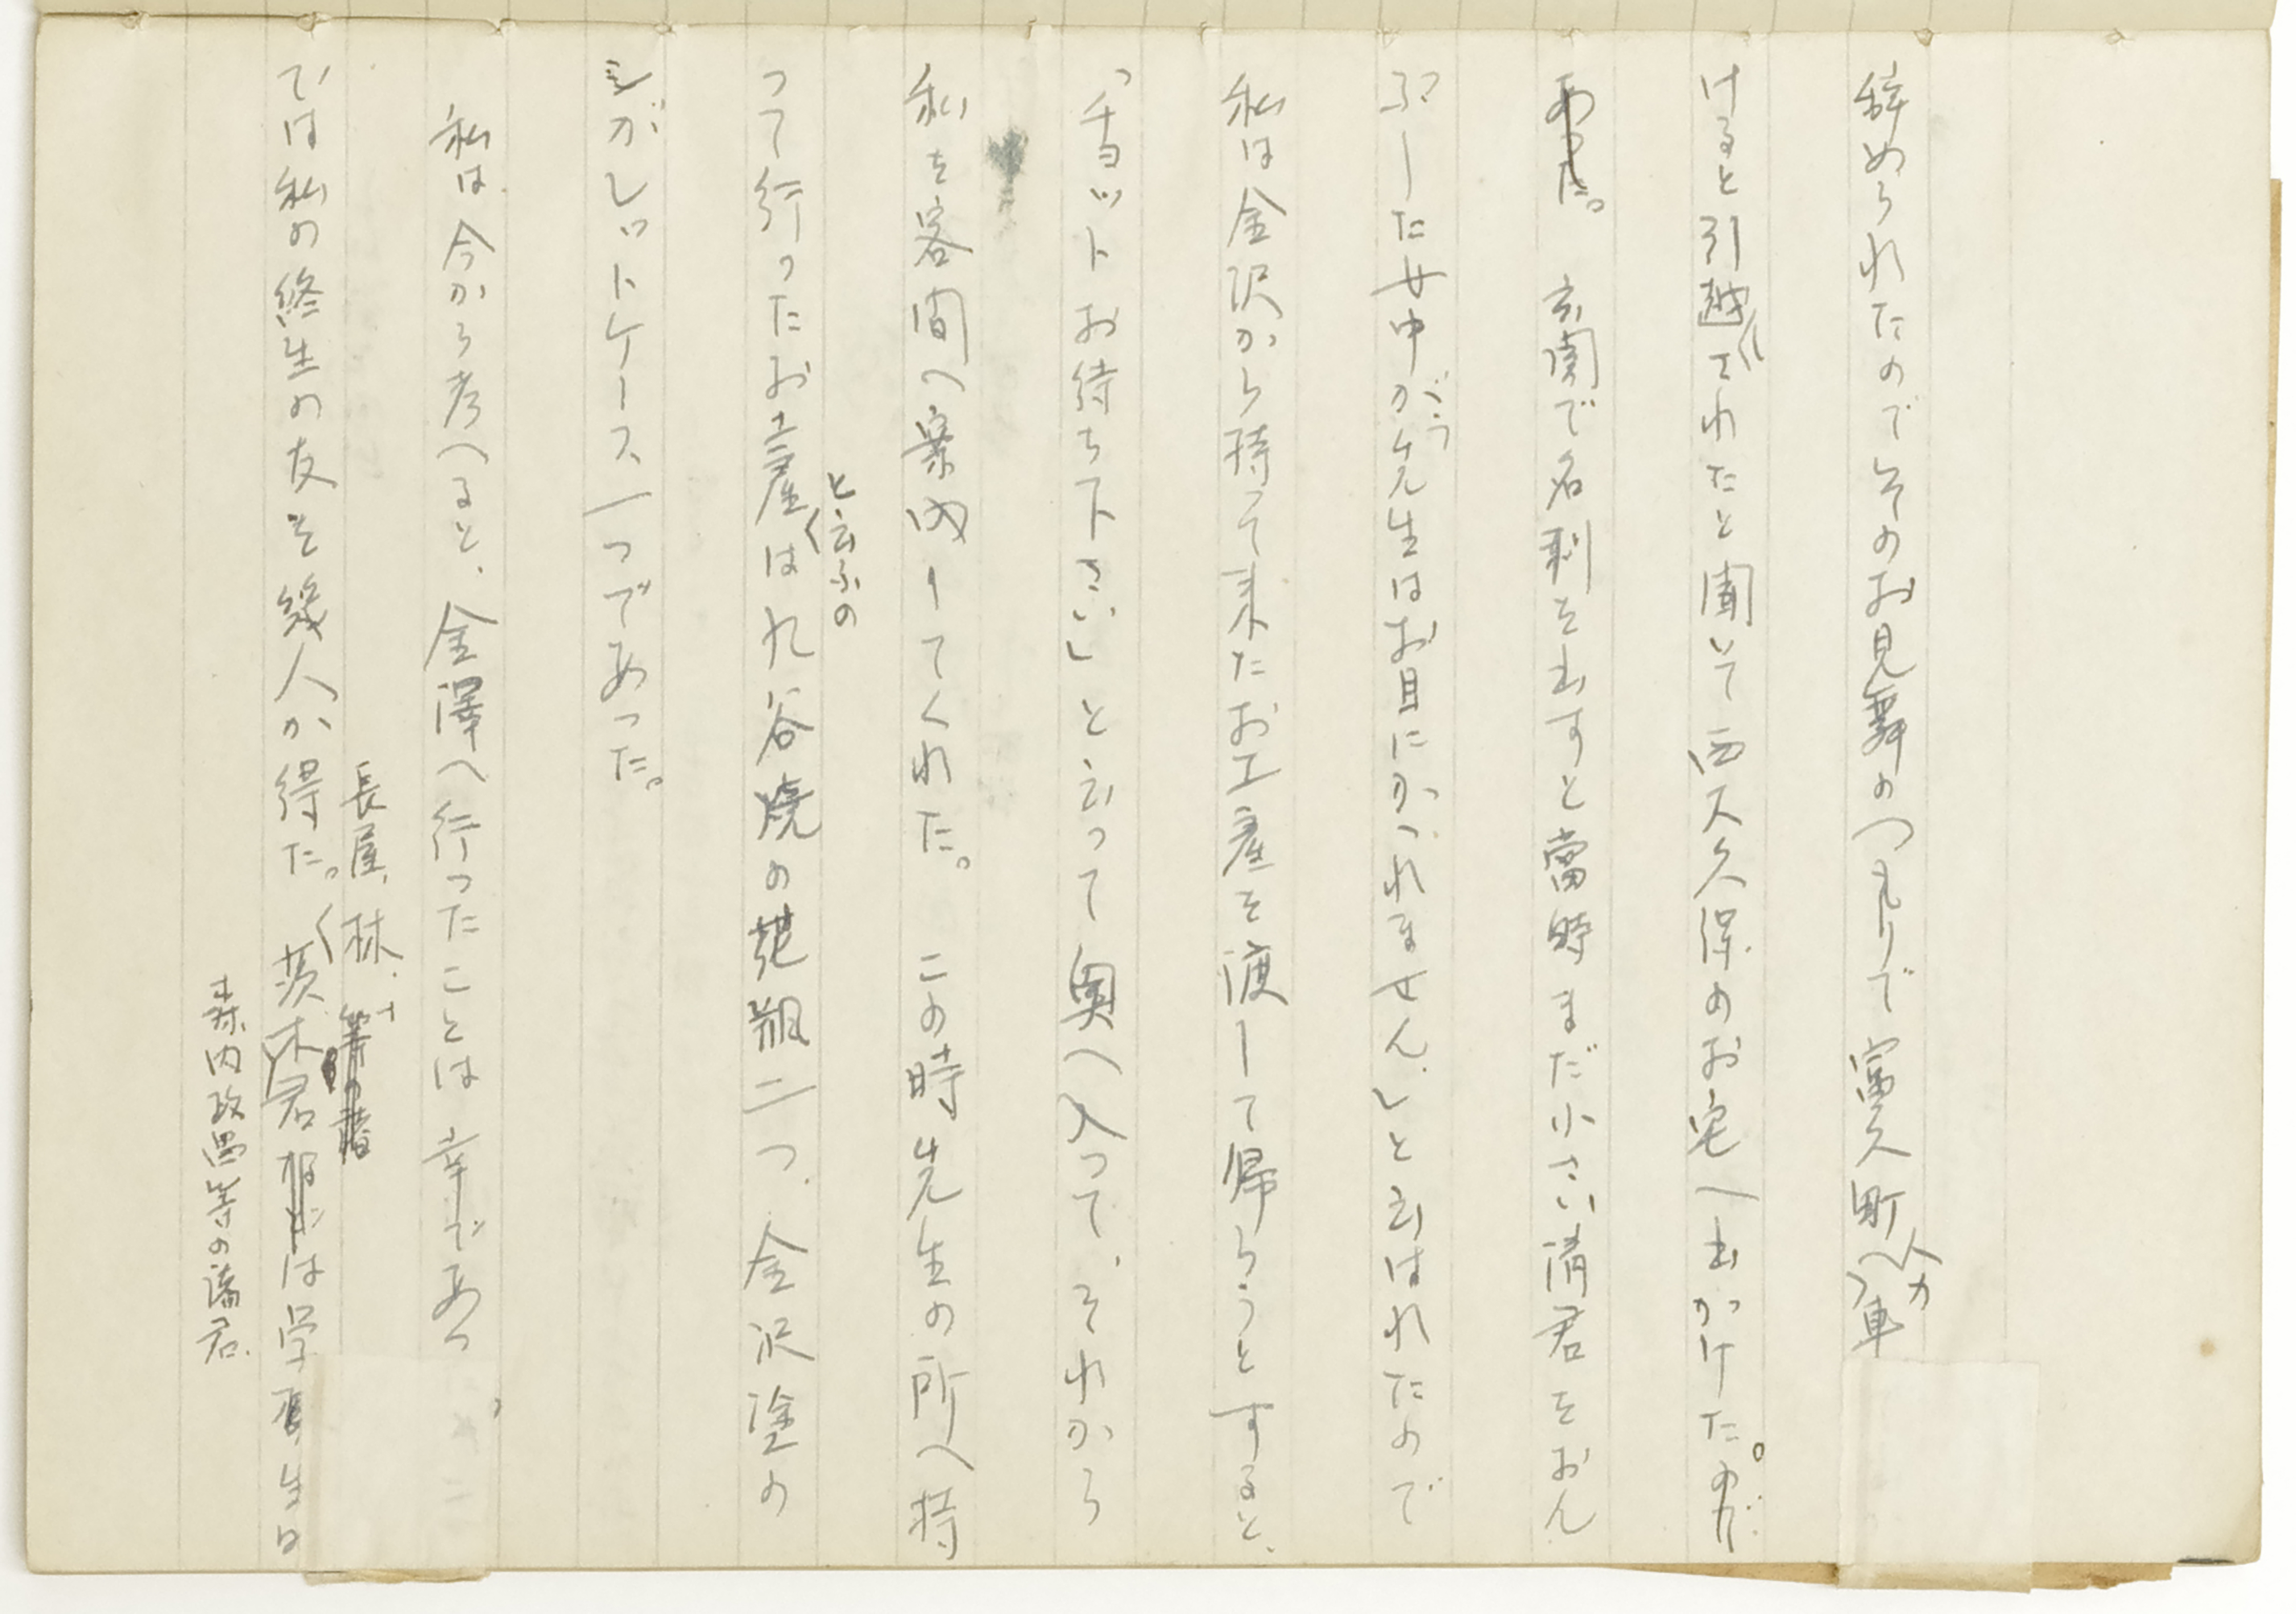 辞められたのでそのお見舞のつもりで富久町へ人力車
けると引越されたと聞いて西大久保のお宅へ出かけた。のが
あった。玄関で名刺を出すと当時まだ小さい清君をおん
ぶした女中が「先生はお目にかゝれません」と云はれたので
私は金沢から持って来たお土産を渡して帰らうとすると、
「チョットお待ち下さい」と云って奥へ入って、それから
私を客間へ案内してくれた。この時先生の所へ持
って行ったお土産と云ふのは九谷焼の花瓶二つ、金沢塗の
シガレットケース一つであった。
私は今から考へると、金澤へ行ったことは幸であっ
では私の終生の友を幾人か得た。
長屋、林、等の諸
茨木君などは学生
森内政昌等の諸君.